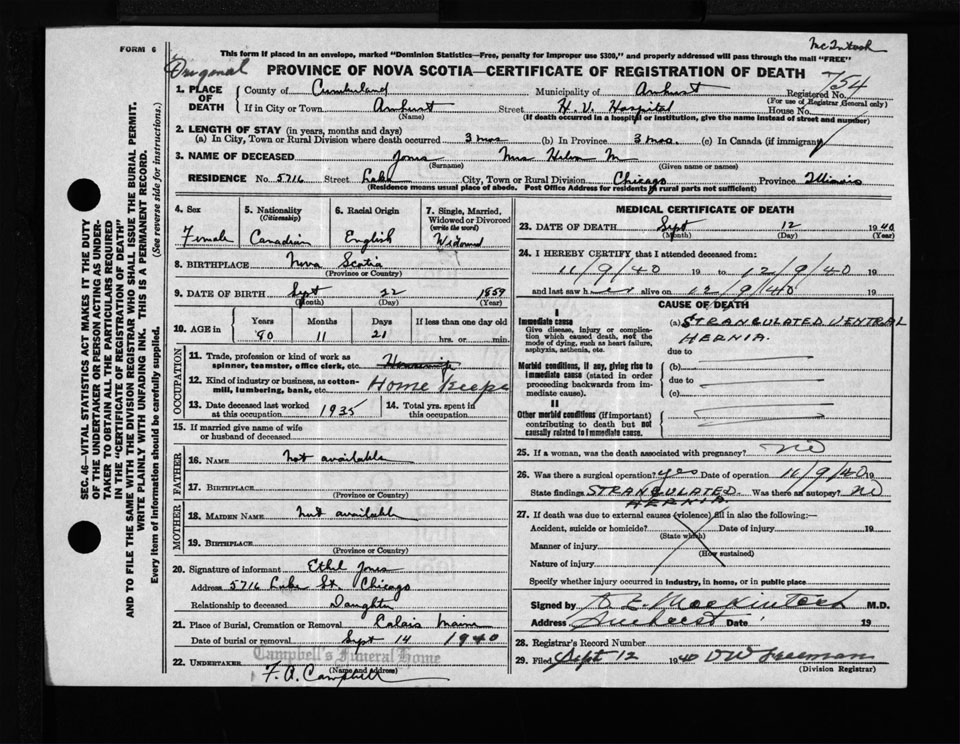 FORM 6
McIntosh
This form if placed in an envelope, marked "Dominion Statistics—Free, penalty for improper use $300," and properly addressed will pass through the mail "FREE"
Original
PROVINCE OF NOVA SCOTIA—CERTIFICATE OF REGISTRATION OF DEATH
754
1. PLACE OF DEATH
County of Cumberland Municipality of Amherst Registered No.
(For use of Registrar General only)
If in City or Town Amherst Street H. V. Hospital House No.
(Name) (If death occurred in a hospital or institution, give the name instead of street and number)
2. LENGTH OF STAY (in years, months and days)
(a) In City, Town or Rural Division where death occurred 3 mos. (b) In Province 3 mos. (c) In Canada (if immigrant)
3. NAME OF DECEASED Jones Mrs Helen M
(Surname) (Given name or names)
RESIDENCE No. 5716 Street Lake City, Town or Rural Division Chicago Province Illinois
(Residence means usual place of abode. Post Office Address for residents in rural parts not sufficient)
4. Sex
Female
5. Nationality
(Citizenship)
Canadian
6. Racial Origin
English
7. Single, Married, Widowed or Divorced
(write the word)
Widowed
8. BIRTHPLACE Nova Scotia
(Province or Country)
9. DATE OF BIRTH Sept 22 1859
(Month) (Day) (Year)
10. AGE in Years Months Days If less than one day old
80 11 21 hrs. or min.
OCCUPATION
11. Trade, profession or kind of work as
spinner, teamster, office clerk, etc. Housewife
12. Kind of industry or business, as cotton-
mill, lumbering, bank, etc. Home Keeper
13. Date deceased last worked
at this occupation 1935
14. Total yrs. spent in
this occupation
15. If married give name of wife
or husband of deceased
FATHER
16. NAME not available
17. BIRTHPLACE
(Province or Country)
MOTHER
18. MAIDEN NAME not available
19. BIRTHPLACE
(Province or Country)
20. Signature of informant Ethel Jones
Address 5716 Lake St. Chicago
Relationship to deceased Daughter
21. Place of Burial, Cremation or Removal Calais Maine
Date of burial or removal Sept 14 1940
Campbell's Funeral Home
22. UNDERTAKER F. A. Campbell
(Name and address)
MEDICAL CERTIFICATE OF DEATH
23. DATE OF DEATH Sept 12 1940
(Month) (Day) (Year)
24. I HEREBY CERTIFY that I attended deceased from:
11/9/40 19 to 12/9/40 19
and last saw h er alive on 12/9/40 19
CAUSE OF DEATH
I
Immediate cause
Give disease, injury or complica-
tion which caused death, not the
mode of dying, such as heart failure,
asphyxia, asthenia, etc.
(a) STRANGULATED VENTRAL
HERNIA.
due to
Morbid conditions, if any, giving rise to
immediate cause (stated in order
proceeding backwards from im-
mediate cause).
(b)
due to
(c)
II
Other morbid conditions (if important)
contributing to death but not
causally related to immediate cause.
25. If a woman, was the death associated with pregnancy? no
26. Was there a surgical operation? yes Date of operation 11/9/40 19
State findings STRANGULATED Was there an autopsy? no
HERNIA
27. If death was due to external causes (violence) fill in also the following:—
Accident, suicide or homicide? Date of injury 19
(State which)
Manner of injury
(How sustained)
Nature of injury
Specify whether injury occurred in industry, in home, or in public place
Signed by D. E. Mackintosh M.D.
Address Amherst Date 19
28. Registrar's Record Number
29. Filed Sept 12 1940 DW Freeman
(Division Registrar)
SEC. 46—VITAL STATISTICS ACT MAKES IT THE DUTY
OF THE UNDERTAKER OR PERSON ACTING AS UNDER-
TAKER TO OBTAIN ALL THE PARTICULARS REQUIRED
IN THE "CERTIFICATE OF REGISTRATION OF DEATH"
AND TO FILE THE SAME WITH THE DIVISION REGISTRAR WHO SHALL ISSUE THE BURIAL PERMIT.
WRITE PLAINLY WITH UNFADING INK. THIS IS A PERMANENT RECORD.
Every item of information should be carefully supplied. (See reverse side for instructions.)